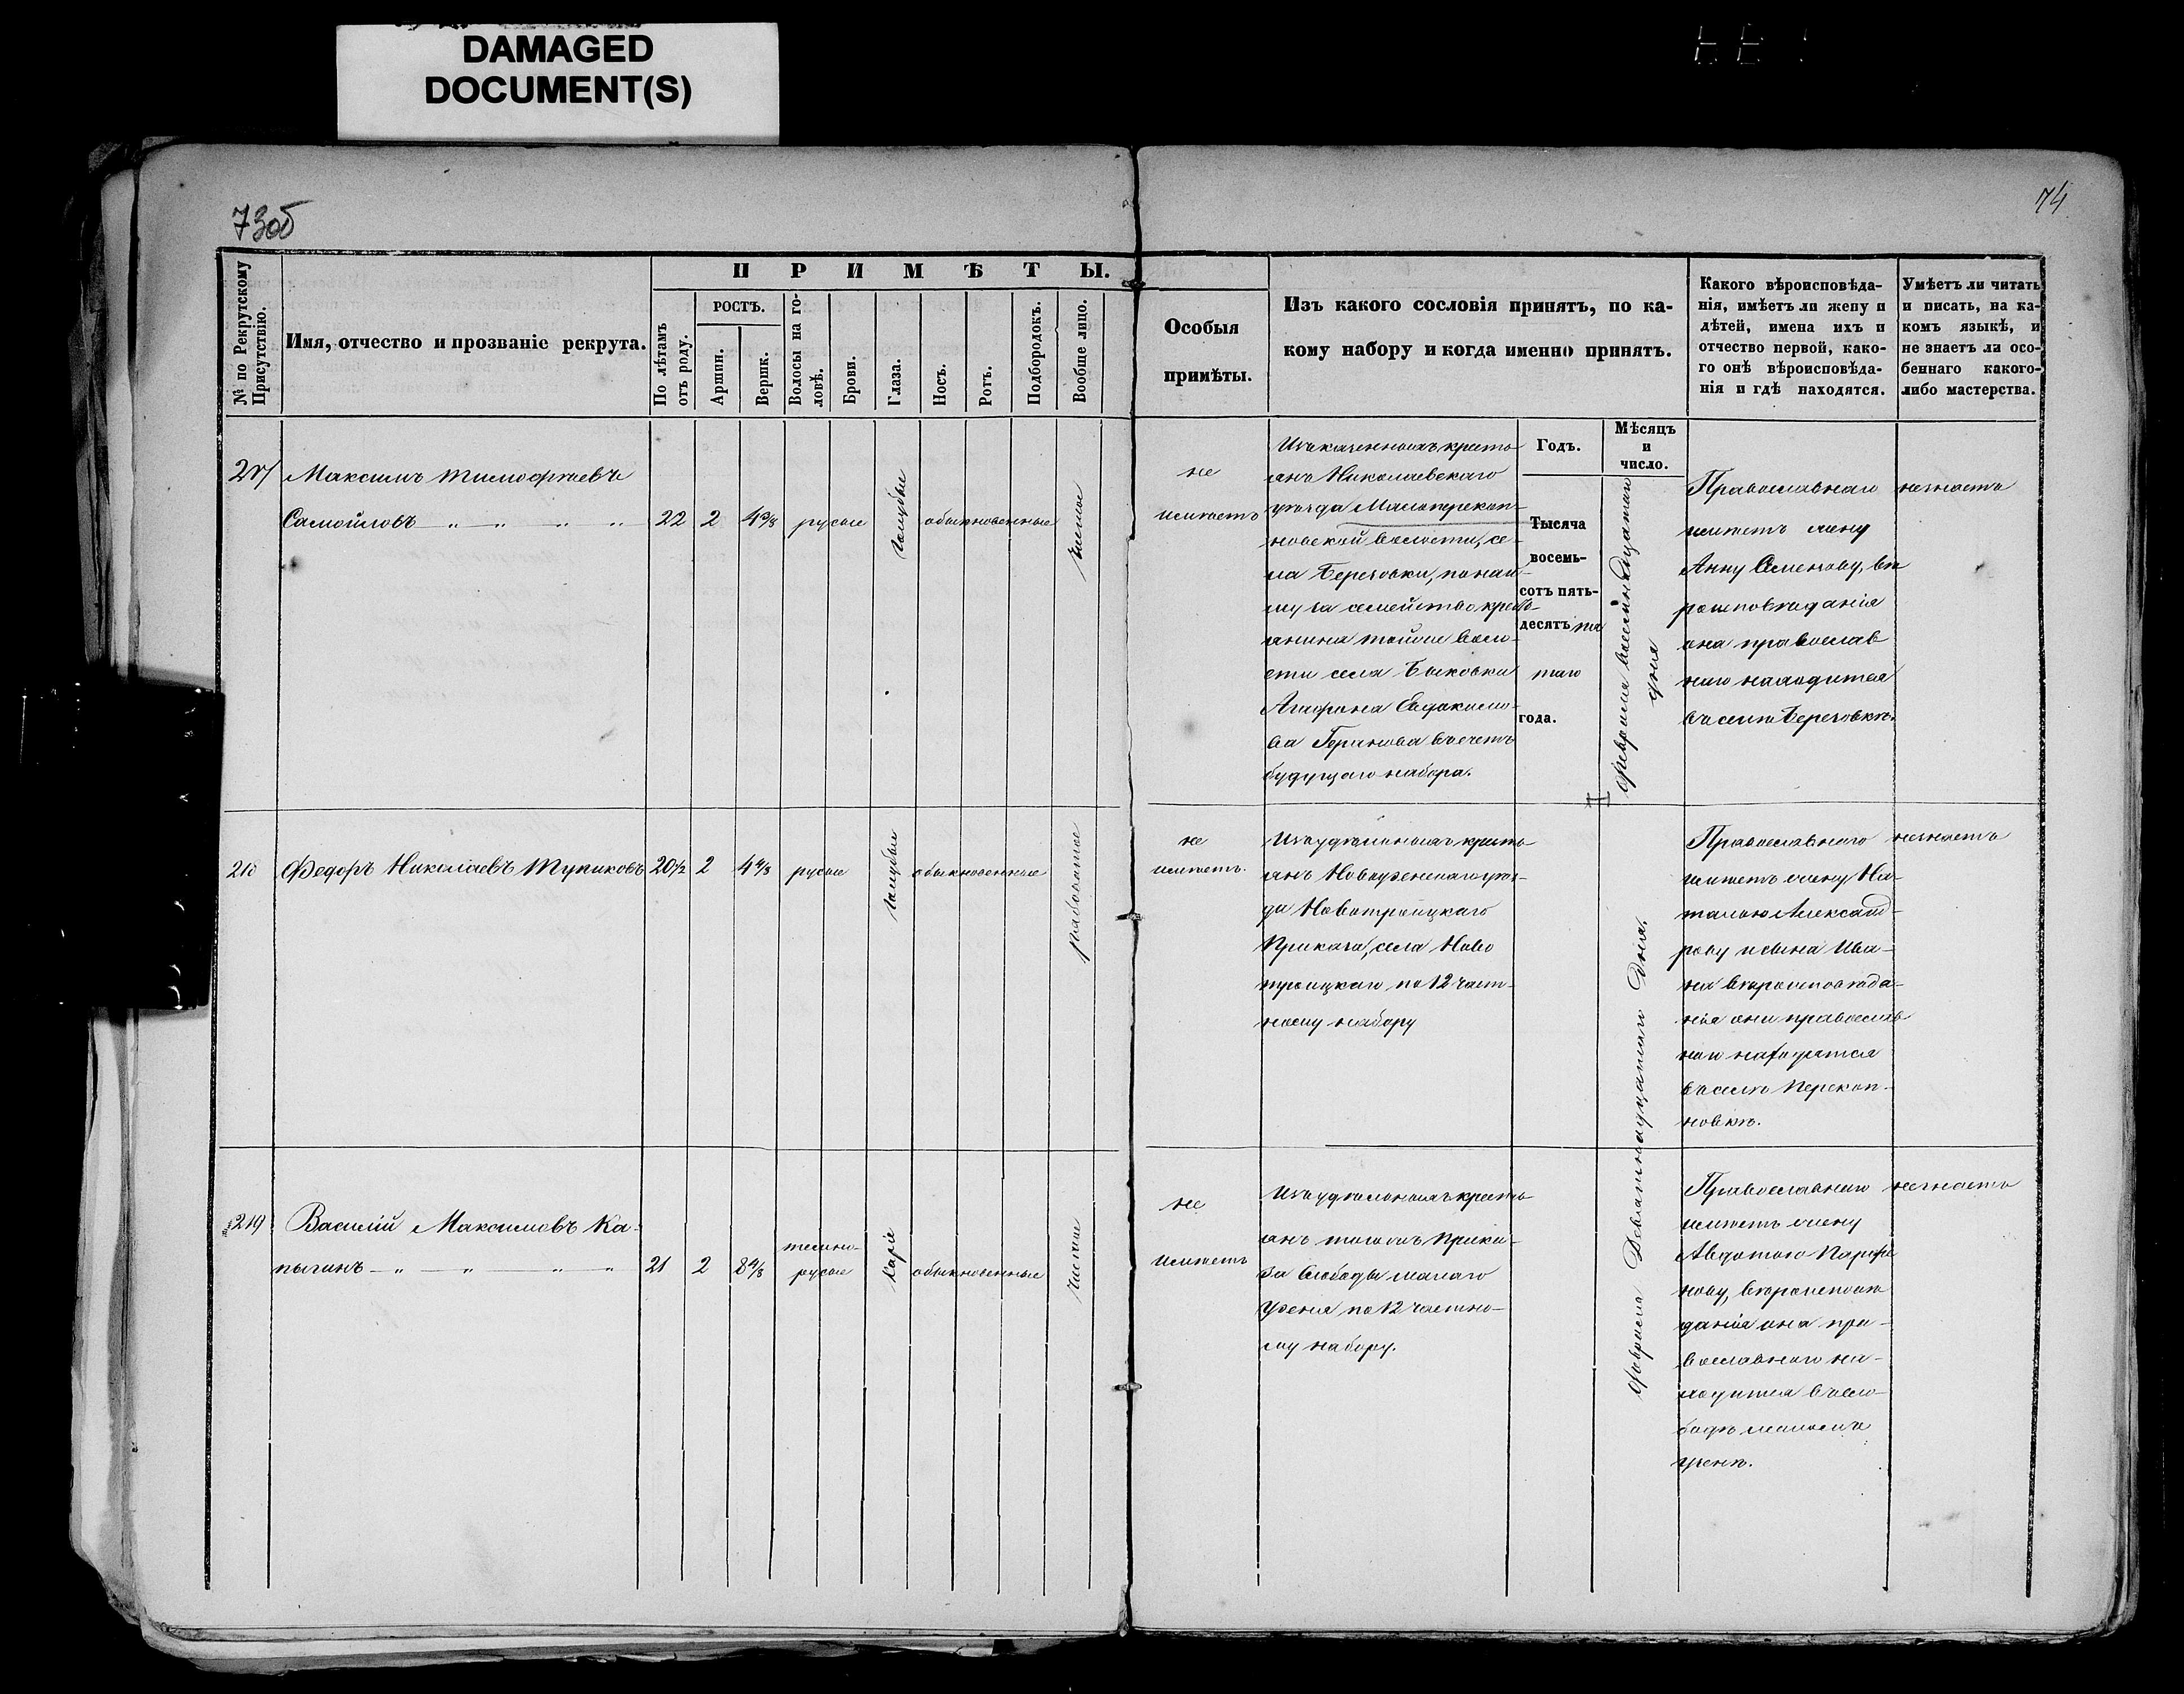 DAMAGED
DOCUMENT(S)
73об
74
№ по Рекрутскому
Присутствію.
Имя, отчество и прозваніе рекрута.
ПРИМѢТЫ.
По лѣтамъ
отъ роду.
РОСТЪ.
Аршин.
Вершк.
Волосы на го-
ловѣ.
Брови.
Глаза.
Носъ.
Ротъ.
Подбородокъ.
Вообще лицо.
Особыя
примѣты.
Изъ какого сословія принятъ, по ка-
кому набору и когда именно принятъ.
Какого вѣроисповѣда-
нія, имѣетъ ли жену и
дѣтей, имена ихъ и
отчество первой, како-
го онѣ вѣроисповѣда-
нія и гдѣ находятся.
Умѣетъ ли читать
и писать, на ка-
комъ языкѣ, и
не знаетъ ли осо-
беннаго какого-
либо мастерства.
Годъ.
Мѣсяцъ
и
число.
217
Максимъ Тимофѣевъ
Самойловъ
22
2
4 3/8
русые
голубые
обыкновенные
чистое
не
имѣетъ
Изъ казенныхъ кресть
янъ Николаевскаго
уѣзда Малоперекоп-
новской волости, се-
ла Березовки, по най-
му за семейство кресть-
янина той же воло-
сти села Быковки
Агафона Евдокимо-
ва Горянова въ счетъ
будущаго набора.
Тысяча
восемь-
сотъ пять-
десятъ пя
таго
года.
Февраля восемнадцатаго
дня
Православнаго
имѣетъ жену
Анну Семенову, вѣ
роисповѣданія
она православ
наго находится
въ селѣ Березовкѣ.
незнаетъ
218
Федоръ Николаевъ Тупиковъ
20 1/2
2
4 4/8
русые
голубые
обыкновенные
рябоватое
не
имѣетъ.
Изъ удѣльныхъ кресть
янъ Новоузенскаго уѣз-
да Новотроицкаго
Приказа, села Ново
троицкаго по 12 част-
ному набору
Февраля Девятнадцатаго Дня.
Православнаго
имѣетъ жену На-
талью Александ-
рову и сына Ива-
на вѣроисповѣда-
нія они православ
наго находятся
въ селѣ Перекоп-
новкѣ.
незнаетъ
219
Василій Максимовъ Ка-
пызинъ
21
2
8 4/8
темно-
русые
каріе
обыкновенные
чистое
не
имѣетъ
Изъ удѣльныхъ кресть
янъ того жъ Прика-
за Слободы малаго
Узеня по 12 частно-
му набору.
Православнаго
имѣетъ жену
Авдотью Парфе
нову, вѣроисповѣ
данія она пра-
вославнаго на-
ходится въ сло-
бодѣ маломъ
узенѣ.
незнаетъ